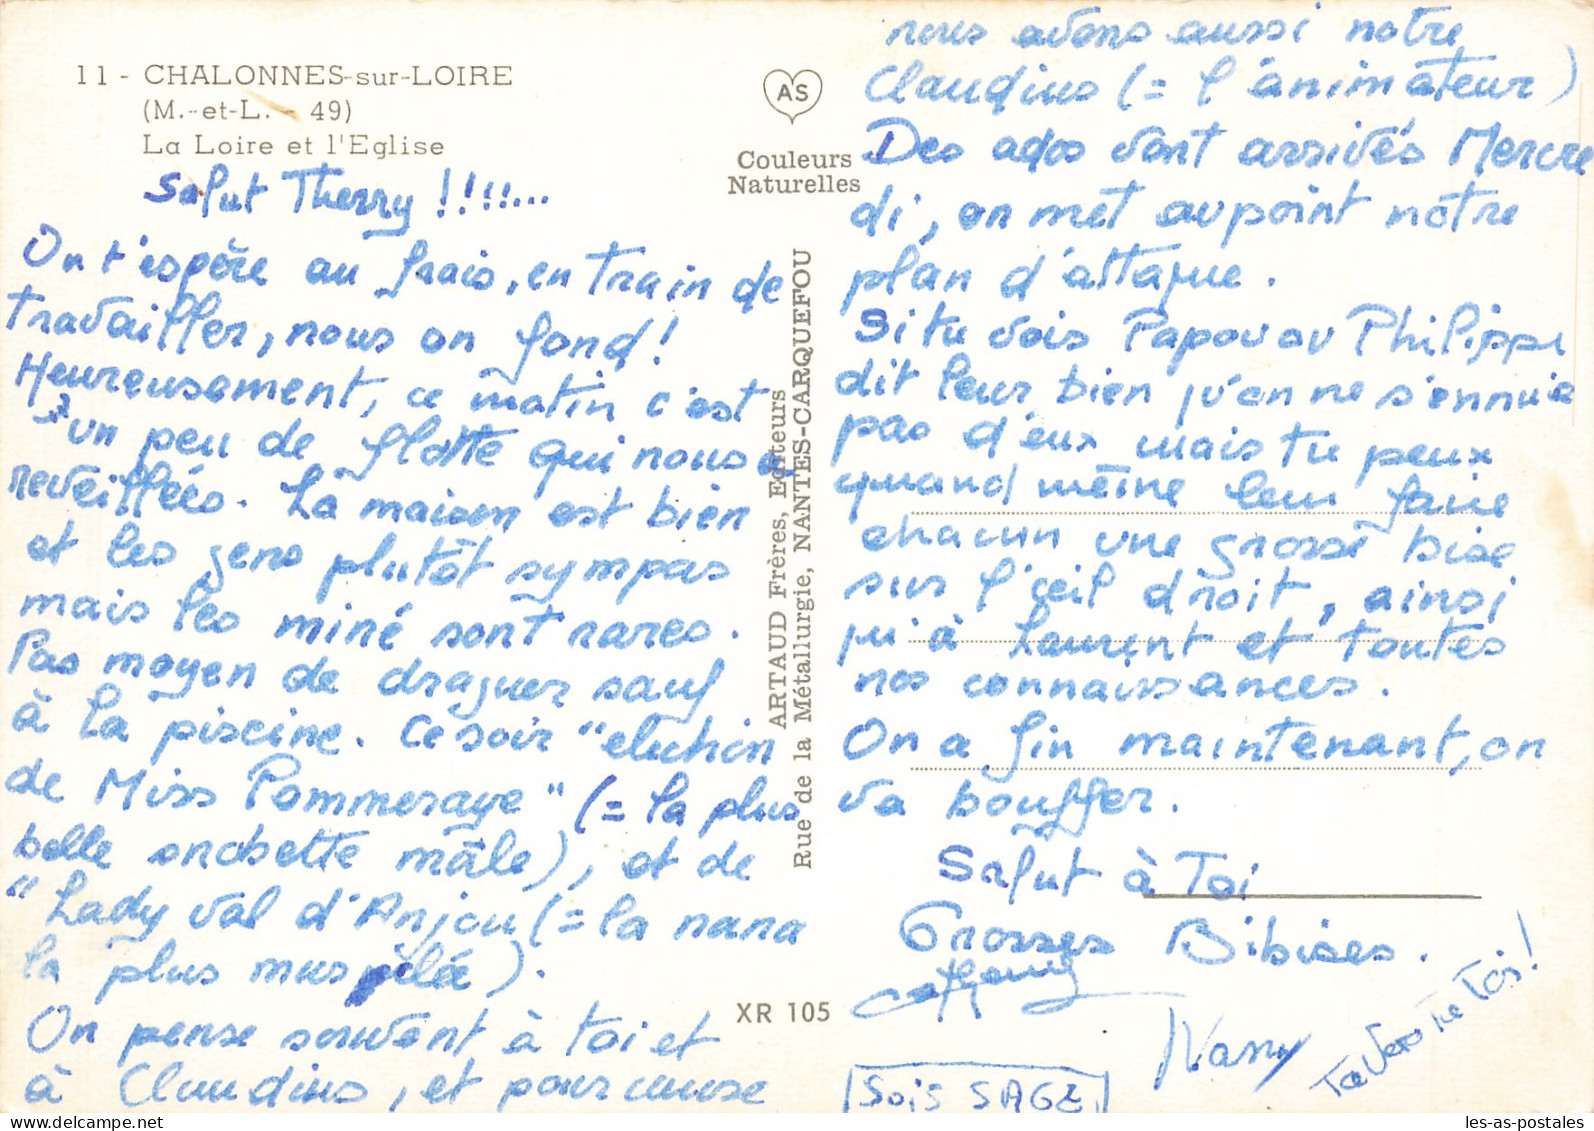 11 - CHALONNES-sur-LOIRE
(M.-et-L. - 49)
La Loire et l'Eglise
Salut Therry !!!!!...
On t'espère au frais, en train de
travailler, nous on fond!
Heureusement, ce matin c'est
un peu de flotte qui nous a
reveillées. La maison est bien
et les gens plutôt sympas
mais les miné sont rares.
Pas moyen de draguer sauf
à la piscine. Ce soir "eluction
de Miss Pommeraye" (= la plus
belle snobette mâle), et de
"Lady val d'Anjou (= la nana
la plus musclée).
On pense souvent à toi et
à Claudius, et pour cause
AS
Couleurs
Naturelles
ARTAUD Frères, Editeurs
Rue de la Métallurgie, NANTES-CARQUEFOU
XR 105
nous avons aussi notre
Claudius (= l'animateur)
Des ados sont arrivés Mercre
di, on met au point notre
plan d'attaque.
Si tu vois Papou ou Philippe
dit leur bien qu'on ne s'ennuie
pas d'eux mais tu peux
quand même leur faire
chacun une grosse bise
sur l'œil droit, ainsi
qu'à Laurent et toutes
nos connaissances.
On a fin maintenant, on
va bouffer.
Salut à Toi
Grosses Bibises.
Nany
Sois SAGE